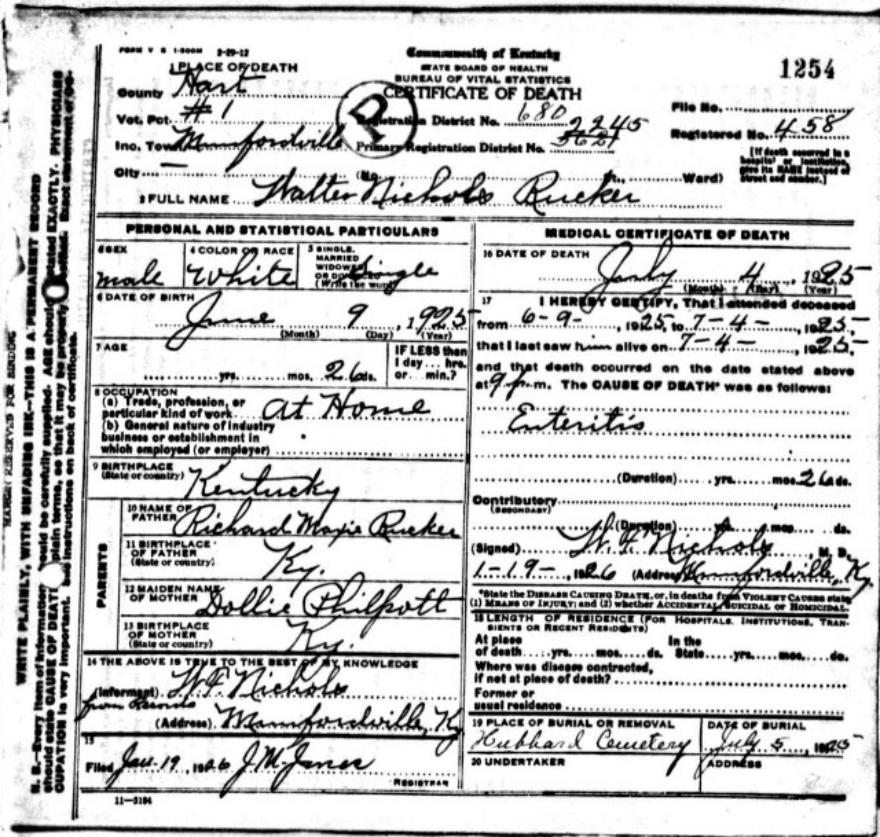 FORM V S 1-500M 2-29-12
Commonwealth of Kentucky
STATE BOARD OF HEALTH
BUREAU OF VITAL STATISTICS
CERTIFICATE OF DEATH
1254
1 PLACE OF DEATH
County Hart
Vot. Pct #1
Inc. Town Munfordville
City —
R
Registration District No. 680
2245
Primary Registration District No. 5621
File No.
Registered No. 458
[If death occurred in a
hospital or institution,
give its NAME instead of
street and number.]
(No. St., Ward)
2 FULL NAME Walter Nichols Rucker
PERSONAL AND STATISTICAL PARTICULARS
3 SEX
male
4 COLOR OR RACE
White
5 SINGLE,
MARRIED
WIDOWED
OR DIVORCED
(Write the word)
Single
6 DATE OF BIRTH
June 9, 1925
(Month) (Day) (Year)
7 AGE
yrs. mos. 26 ds.
IF LESS than
1 day... hrs.
or... min.?
8 OCCUPATION
(a) Trade, profession, or
particular kind of work at Home
(b) General nature of industry
business or establishment in
which employed (or employer)
9 BIRTHPLACE
(State or country)
Kentucky
PARENTS
10 NAME OF
FATHER Richard Maxie Rucker
11 BIRTHPLACE
OF FATHER
(State or country) Ky.
12 MAIDEN NAME
OF MOTHER Dollie Philpott
13 BIRTHPLACE
OF MOTHER
(State or country) Ky.
14 THE ABOVE IS TRUE TO THE BEST OF MY KNOWLEDGE
(Informant) W. F. Nichols
from Records
(Address) Munfordville, Ky
15
Filed Jan. 19, 1926 J. M. Janes
REGISTRAR
11—3184
MEDICAL CERTIFICATE OF DEATH
16 DATE OF DEATH
July 4, 1925
(Month) (Day) (Year)
17 I HEREBY CERTIFY, That I attended deceased
from 6-9-, 1925, to 7-4-, 1925,
that I last saw him alive on 7-4-, 1925,
and that death occurred on the date stated above
at 9 p.m. The CAUSE OF DEATH* was as follows:
Enteritis
(Duration) yrs. mos. 26 ds.
Contributory
(SECONDARY)
(Duration) yrs. mos. ds.
(Signed) W. F. Nichols, M. D.
1-19-, 1926 (Address) Munfordville, Ky.
*State the DISEASE CAUSING DEATH, or, in deaths from VIOLENT CAUSES state
(1) MEANS OF INJURY; and (2) whether ACCIDENTAL, SUICIDAL or HOMICIDAL.
18 LENGTH OF RESIDENCE (FOR HOSPITALS, INSTITUTIONS, TRAN-
SIENTS OR RECENT RESIDENTS)
At place In the
of death....yrs....mos....ds. State....yrs....mos....ds.
Where was disease contracted,
if not at place of death?
Former or
usual residence
19 PLACE OF BURIAL OR REMOVAL
Hubbard Cemetery
DATE OF BURIAL
July 5, 1925
20 UNDERTAKER
ADDRESS
MARGIN RESERVED FOR BINDING
WRITE PLAINLY, WITH UNFADING INK—THIS IS A PERMANENT RECORD
N. B.—Every item of information should be carefully supplied. AGE should be stated EXACTLY. PHYSICIANS
should state CAUSE OF DEATH in plain terms, so that it may be properly classified. Exact statement of OC-
CUPATION is very important. See instructions on back of certificate.